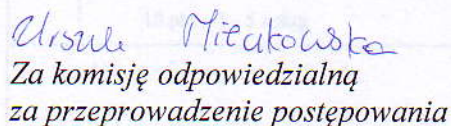 Urszula
Za komisję odpowiedzialną
za przeprowadzenie postępowania